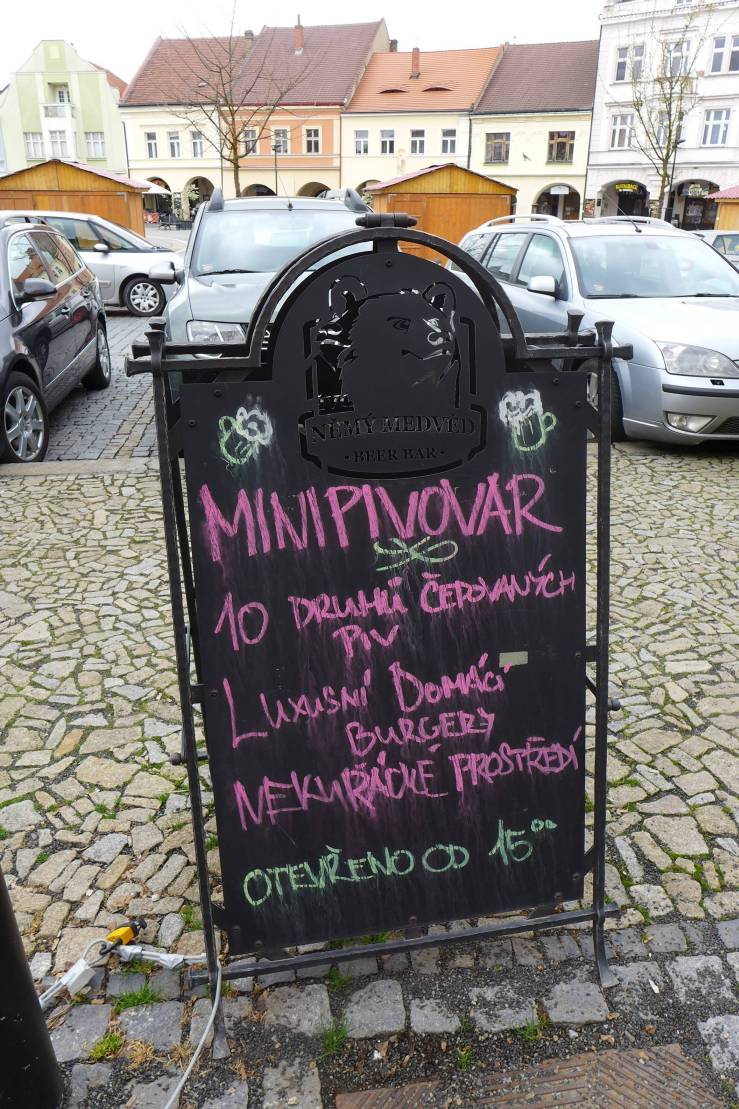 NĚMÝ MEDVĚD
· BEER BAR ·
MINIPIVOVAR
10 DRUHŮ ČEPOVANÝCH
PIV
LUXUSNÍ DOMÁCÍ
BURGERY
NEKUŘÁCKÉ PROSTŘEDÍ
OTEVŘENO OD 15⁰⁰